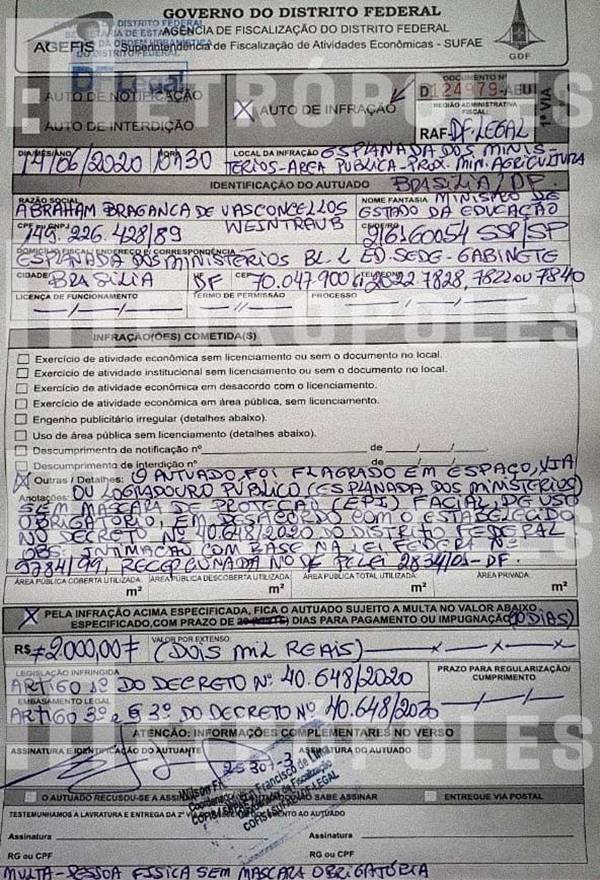 GOVERNO DO DISTRITO FEDERAL
AGÊNCIA DE FISCALIZAÇÃO DO DISTRITO FEDERAL
Superintendência de Fiscalização de Atividades Econômicas - SUFAE
AGEFIS
GDF
DF Legal
METRÓPOLES
AUTO DE NOTIFICAÇÃO
AUTO DE INTERDIÇÃO
X AUTO DE INFRAÇÃO
DOCUMENTO Nº
D124979-AEU
1ª VIA
REGIÃO ADMINISTRATIVA FISCAL:
RAF- DF LEGAL
DIA/MÊS/ANO 14/06/2020
HORA 10h30
LOCAL DA INFRAÇÃO ESPLANADA DOS MINIS-
TÉRIOS-ÁREA PÚBLICA-PROX. MIN. AGRICULTURA
BRASÍLIA/DF
IDENTIFICAÇÃO DO AUTUADO
RAZÃO SOCIAL
ABRAHAM BRAGANCA DE VASCONCELLOS
WEINTRAUB
NOME FANTASIA MINISTRO DE
ESTADO DA EDUCAÇÃO
CPF
CF/DF/RG
SSP/SP
DOMICÍLIO FISCAL/ENDEREÇO P/ CORRESPONDÊNCIA
ESPLANADA DOS MINISTÉRIOS BL. L ED. SEDE-GABINETE
CIDADE BRASÍLIA
DF
CEP 70.047.900
TELEFONE 61 2022 7828, 7822 ou 7840
LICENÇA DE FUNCIONAMENTO
TERMO DE PERMISSÃO
PROCESSO
INFRAÇÃO(ÕES) COMETIDA(S)
Exercício de atividade econômica sem licenciamento ou sem o documento no local.
Exercício de atividade institucional sem licenciamento ou sem o documento no local.
Exercício de atividade econômica em desacordo com o licenciamento.
Exercício de atividade econômica em área pública, sem licenciamento.
Engenho publicitário irregular (detalhes abaixo).
Uso de área pública sem licenciamento (detalhes abaixo).
Descumprimento de notificação nº de / /
Descumprimento de interdição nº de / /
X Outras / Detalhes: O AUTUADO, FOI FLAGRADO EM ESPAÇO, VIA
Anotações: OU LOGRADOURO PÚBLICO (ESPLANADA DOS MINISTÉRIOS)
SEM MÁSCARA DE PROTEÇÃO (EPI) FACIAL, DE USO
OBRIGATÓRIO, EM DESACORDO COM O ESTABELECIDO
NO DECRETO Nº 40.648/2020 DO DISTRITO FEDERAL
OBS: INTIMAÇÃO COM BASE NA LEI FEDERAL Nº
9784/99, RECEPCIONADA NO DF P/ LEI 2834/01-DF.
ÁREA PÚBLICA COBERTA UTILIZADA: m²
ÁREA PÚBLICA DESCOBERTA UTILIZADA: m²
ÁREA PÚBLICA TOTAL UTILIZADA: m²
ÁREA PRIVADA: m²
X PELA INFRAÇÃO ACIMA ESPECIFICADA, FICA O AUTUADO SUJEITO A MULTA NO VALOR ABAIXO
ESPECIFICADO, COM PRAZO DE DIAS PARA PAGAMENTO OU IMPUGNAÇÃO (10 DIAS)
R$ 2000,00
VALOR POR EXTENSO (DOIS MIL REAIS)
LEGISLAÇÃO INFRINGIDA
ARTIGO 1º DO DECRETO Nº 40.648/2020
PRAZO PARA REGULARIZAÇÃO/
CUMPRIMENTO
EMBASAMENTO LEGAL
ARTIGO 3º e § 3º DO DECRETO Nº 40.648/2020
ATENÇÃO: INFORMAÇÕES COMPLEMENTARES NO VERSO
ASSINATURA E IDENTIFICAÇÃO DO AUTUANTE
25307-3
ASSINATURA DO AUTUADO
Francisco de
O AUTUADO RECUSOU-SE A ASSINAR
NÃO SABE ASSINAR
ENTREGUE VIA POSTAL
TESTEMUNHAMOS A LAVRATURA E ENTREGA DA 2ª VIA AO AUTUADO
Assinatura
Assinatura
RG ou CPF
RG ou CPF
MULTA-PESSOA FÍSICA SEM MÁSCARA OBRIGATÓRIA